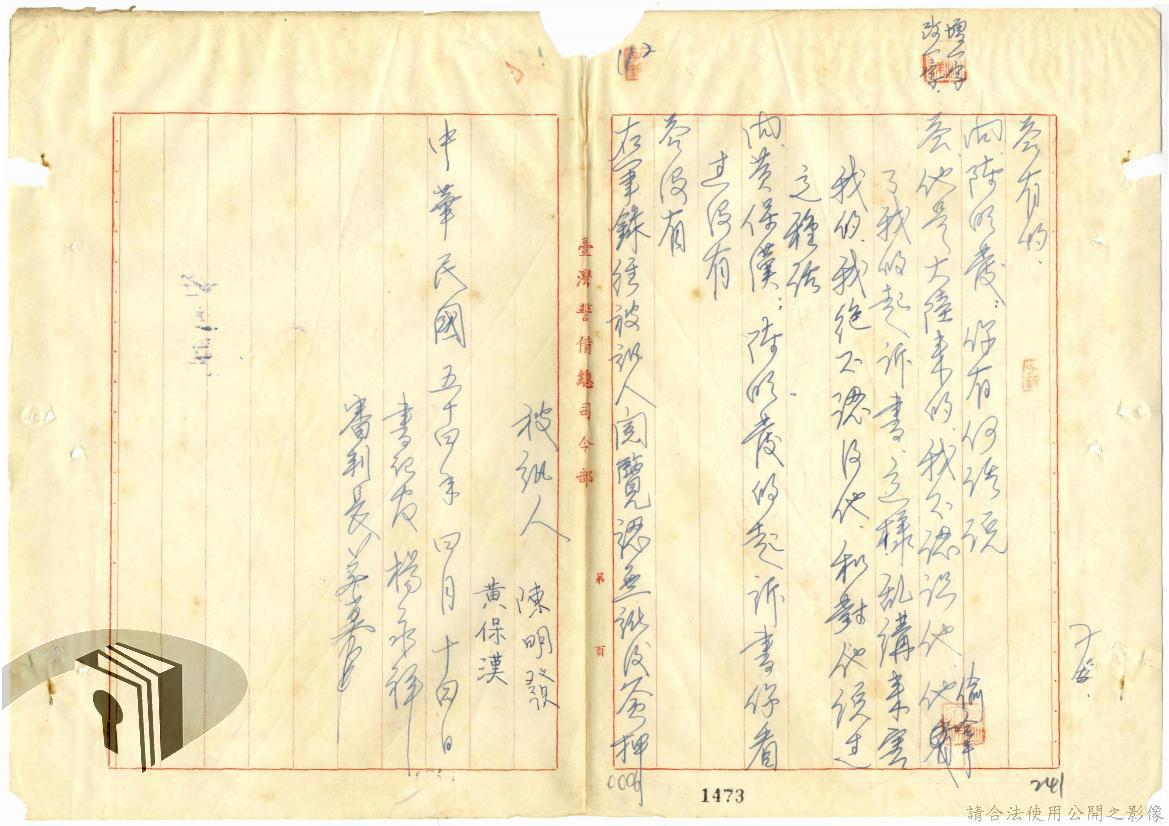 增一字
改一字
答有的、
問陳明發：你有何話說
答、他是大陸來的、我不認識他、他偷拿
了我的起訴書、這樣亂講來害
我的、我絕不認得他、和對他說過
這種話、
問黃保漢：陳明發的起訴書你看
過沒有
答沒有
右筆錄經被訊人閱覽認無訛後簽押
臺灣警備總司令部
第 頁
被訊人 陳明發
黃保漢
中華民國五十四年四月十四日
書記官 楊永祥
審判長
1473
241
請合法使用公開之影像